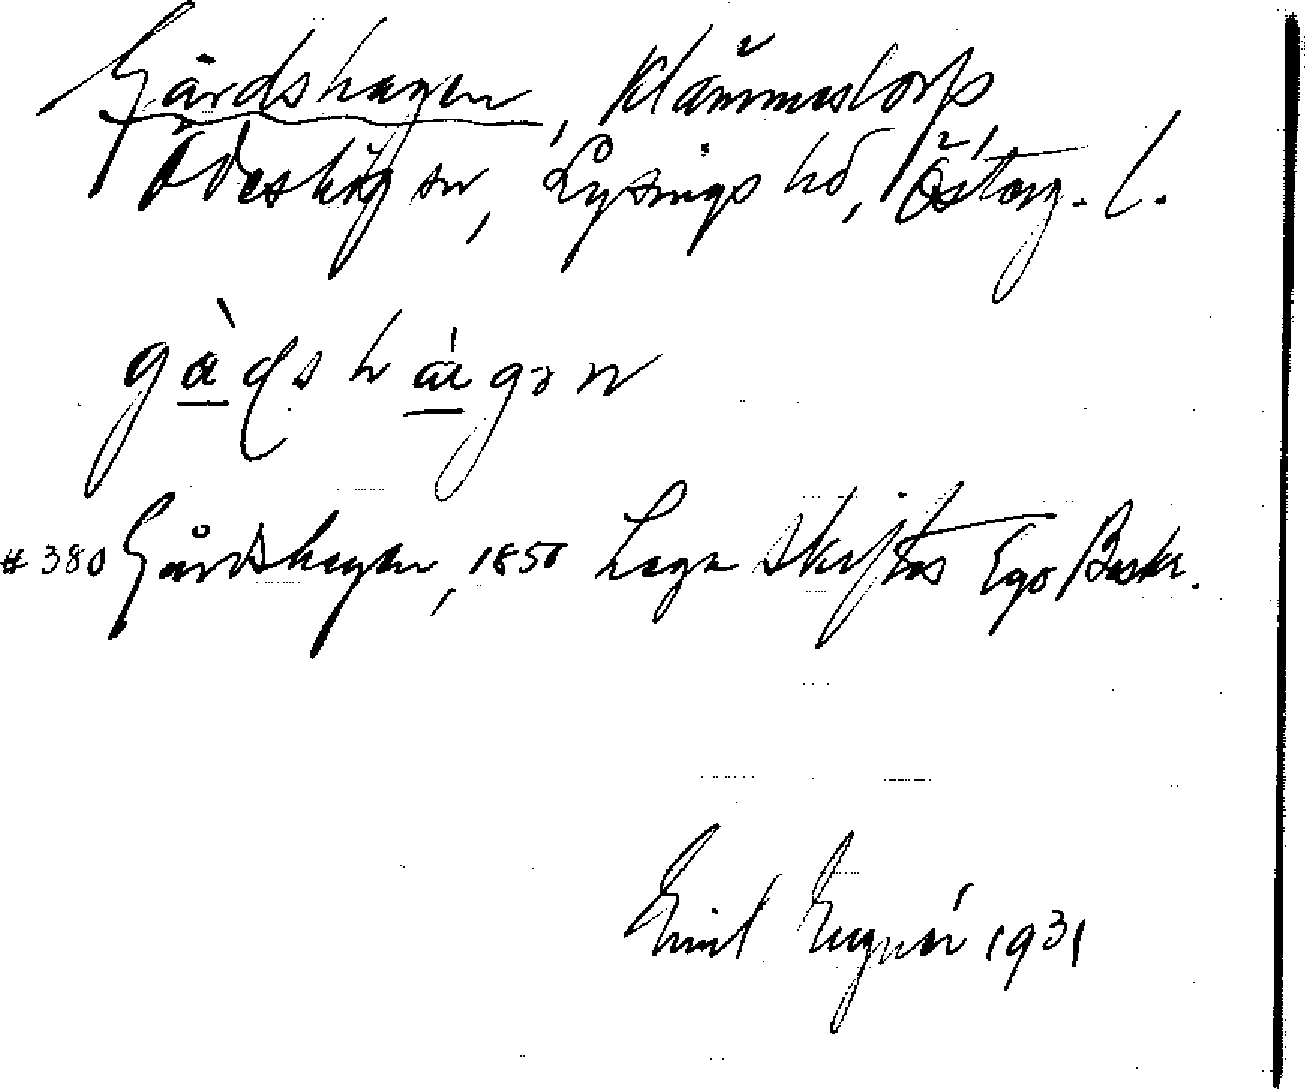 Gärdshagen, Klämmestorp
Ödeshög sn, Lysings hd, Österg. l.
gàɖshágən
# 380 Gårdshagen, 1850 Laga skiftes Ego Beskr.
Emil 1931